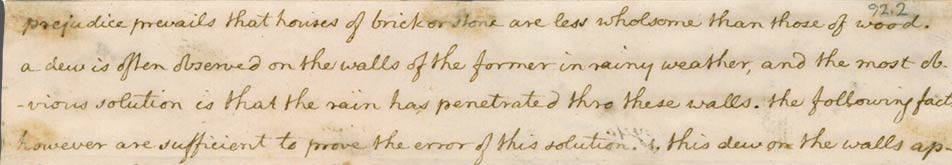 92.2
prejudice prevails that houses of brick or stone are less wholsome than those of wood.
a dew is often observed on the walls of the former in rainy weather, and the most ob-
-vious solution is that the rain has penetrated thro these walls. the following fact
however are sufficient to prove the error of this solution. 1. this dew on the walls ap-